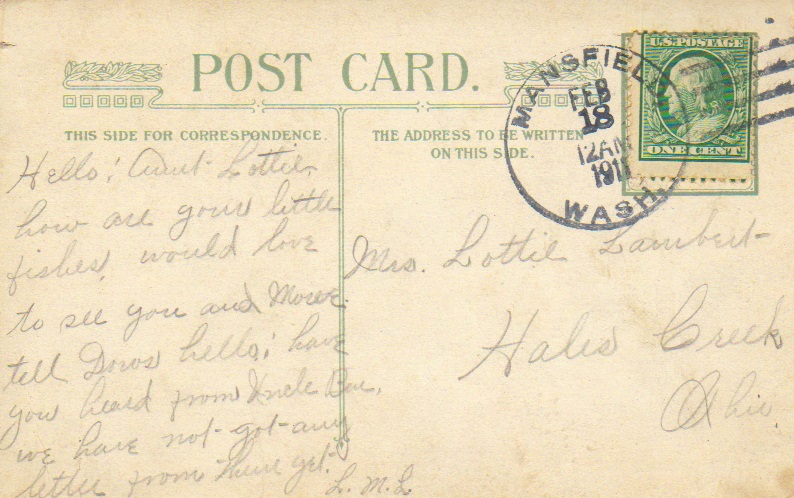 POST CARD.
THIS SIDE FOR CORRESPONDENCE.
THE ADDRESS TO BE WRITTEN
ON THIS SIDE.
MANSFIELD
FEB
18
12AM
1911
WASH.
U.S. POSTAGE
ONE CENT
Hello! Aunt Lottie,
how are your little
fishes, would love
to see you and
tell hello! have
you heard from Uncle Ben,
we have not got any
letter from there yet.
L. M. L
Mrs. Lottie Lambert
Hales Creek
Ohio